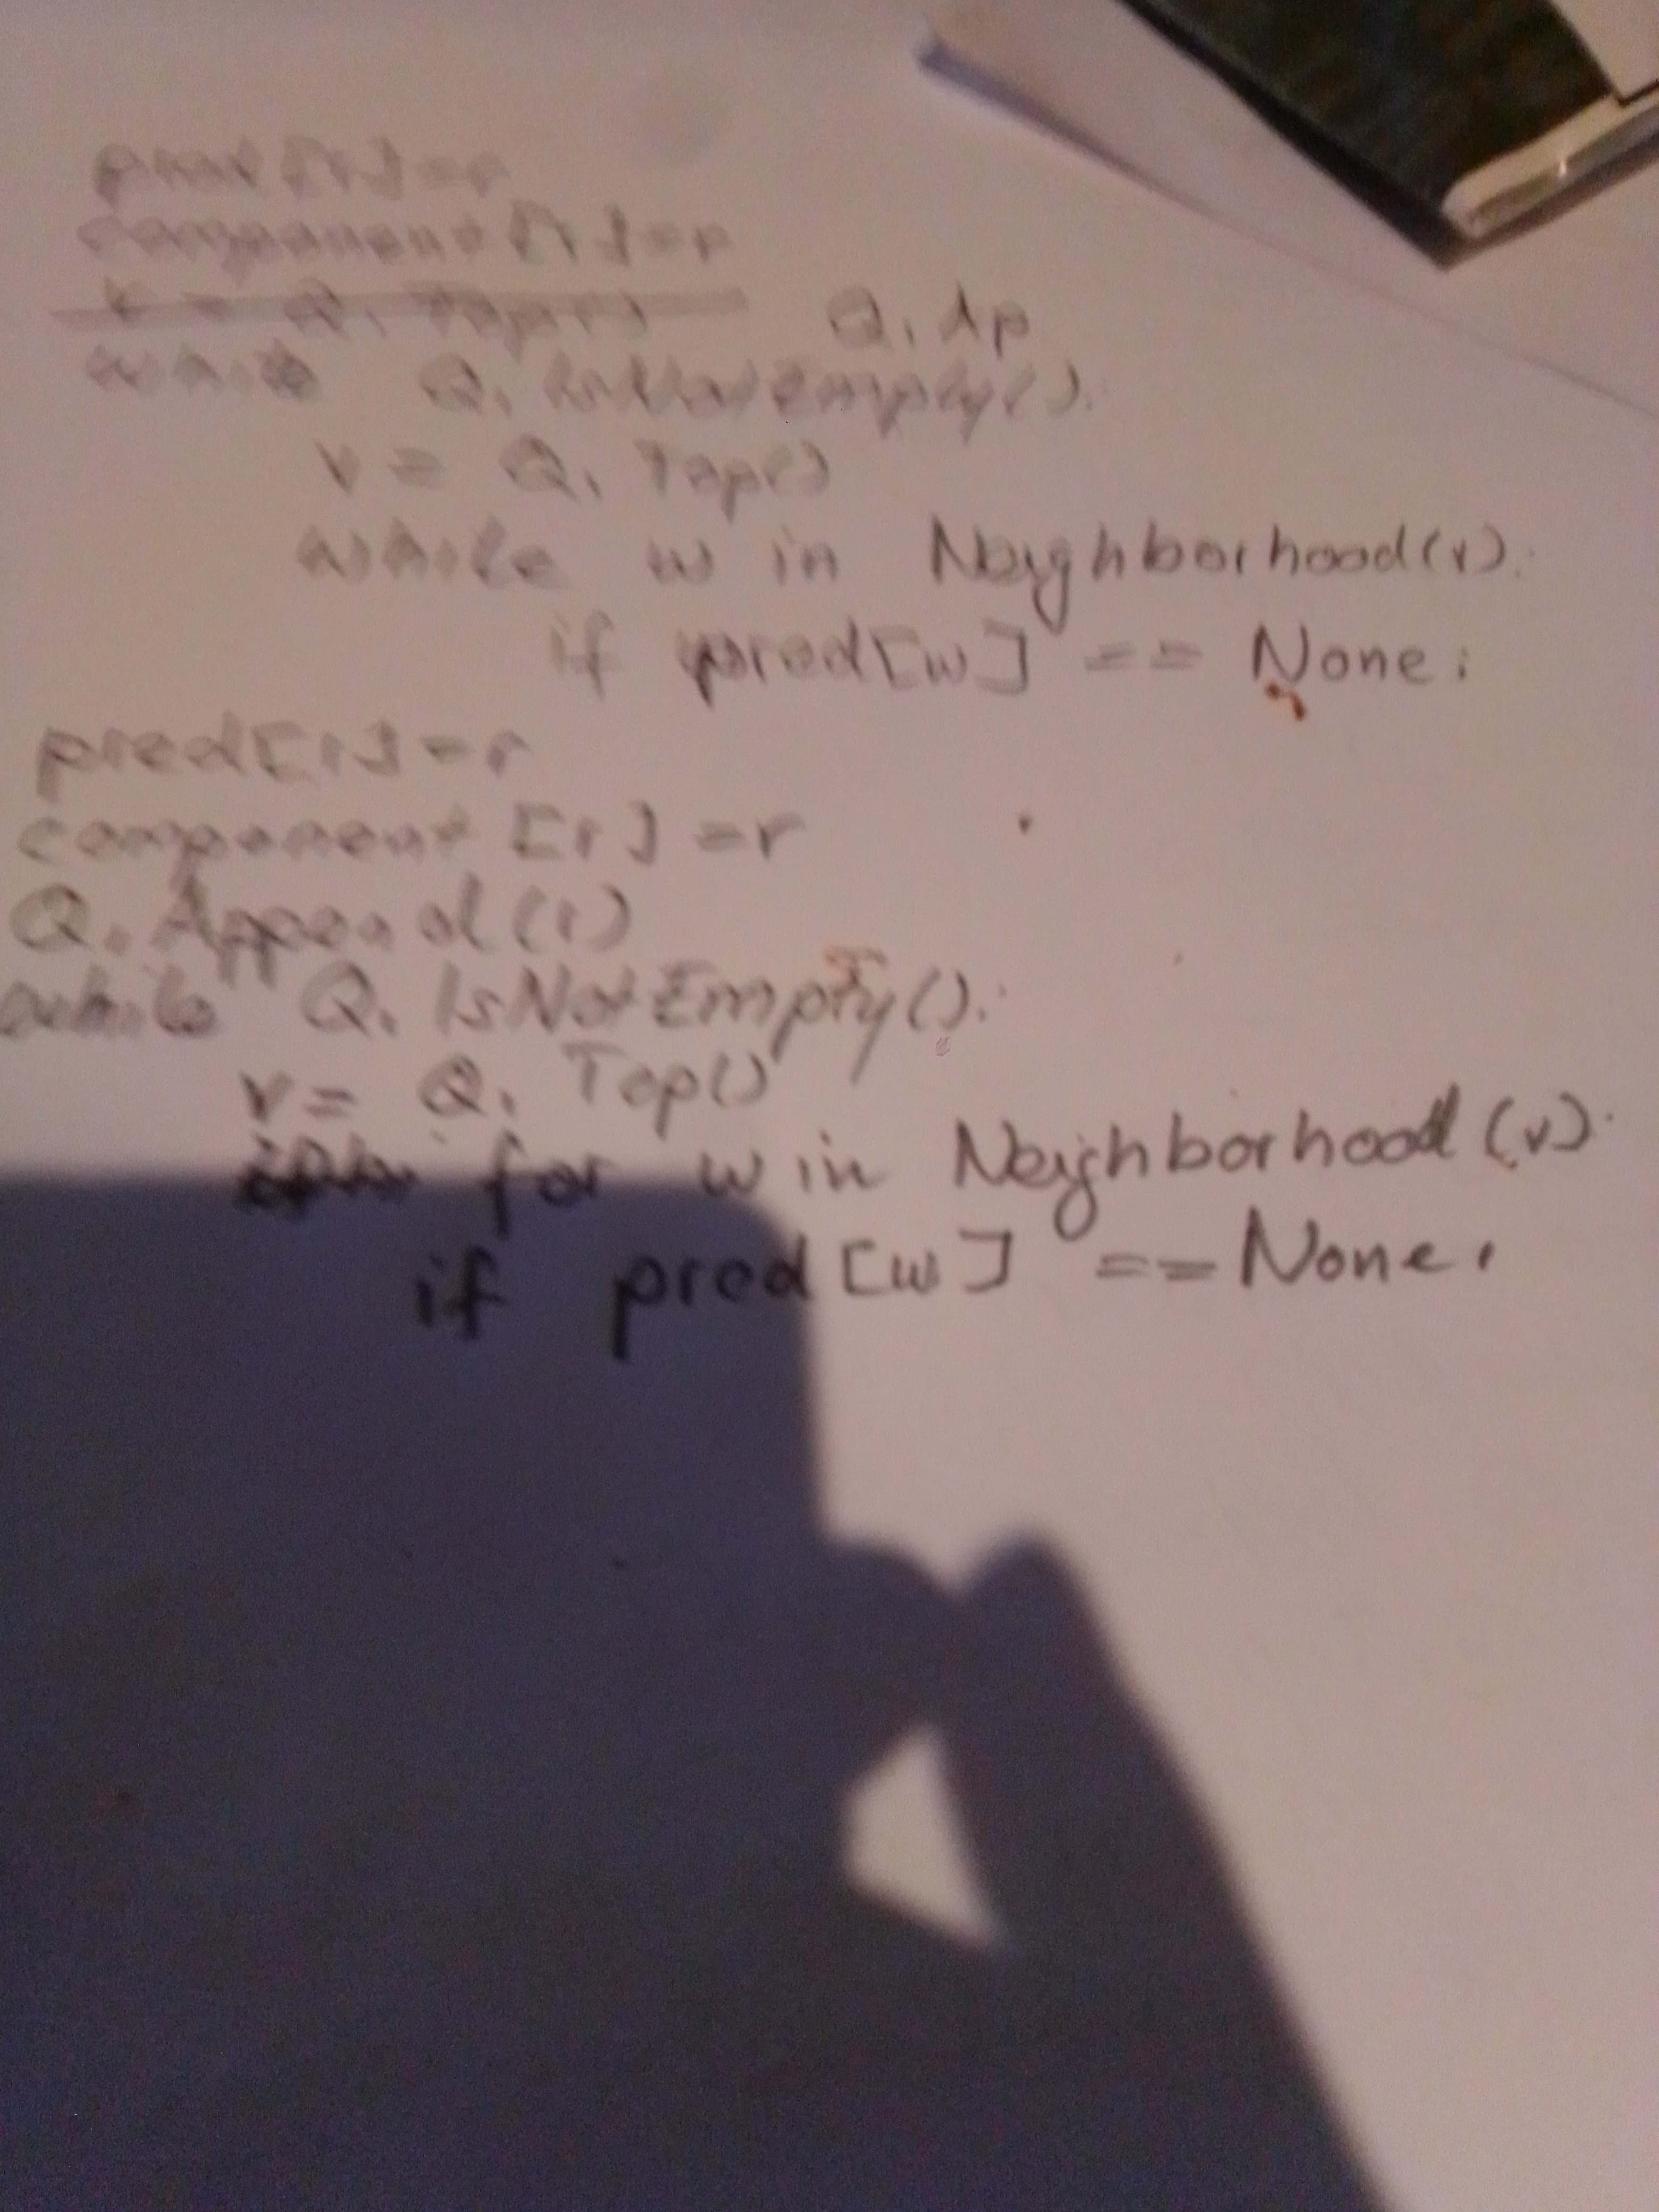 pred[r]=r
component[r]=r
v = Q. Top()   Q. Ap
while Q. IsNotEmpty():
v = Q. Top()
while w in Neighborhood(v):
if pred[w] == None:
pred[r]=r
component [r] =r
Q. Append(r)
while Q. IsNotEmpty():
v= Q. Top()
for w in Neighborhood (v):
if pred [w] ==None: